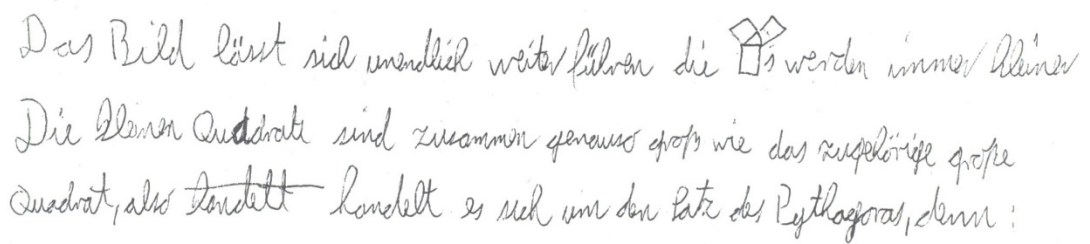 Das Bild lässt sich unendlich weiter führen die 's werden immer kleiner
Die kleinen Quadrate sind zusammen genauso groß wie das zugehörige große
Quadrat, also handelt es sich um den Satz des Pythagoras, denn: